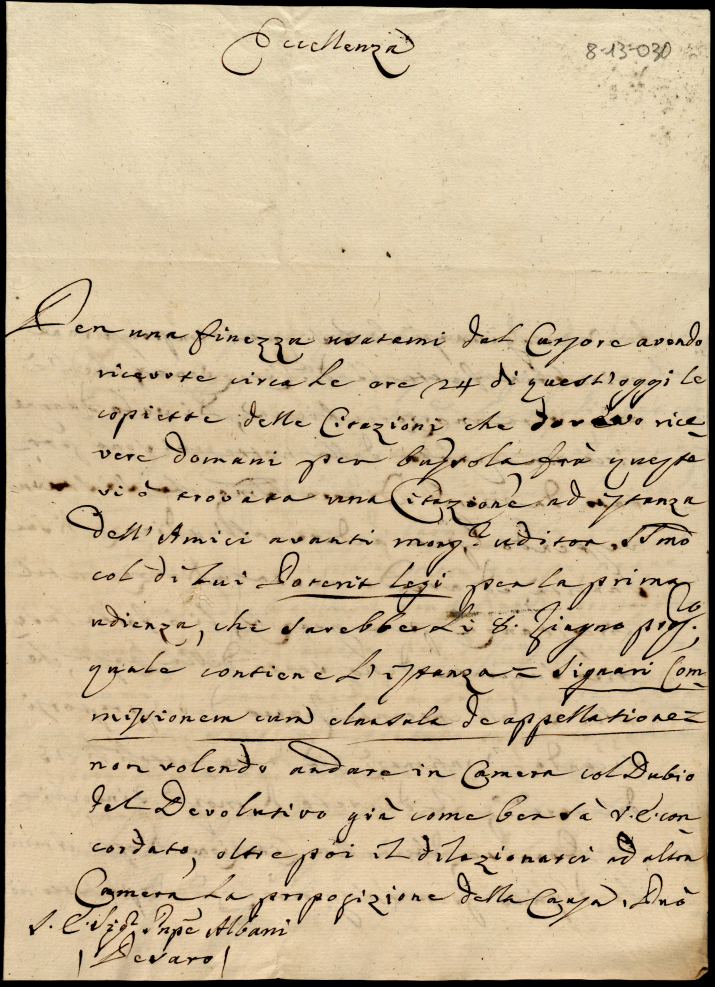 Eccellenza
8-13-030
Per una finezza usatami dal Cursore avendo
ricevute circa le ore 24 di quest'oggi le
copiette delle Citazioni che dovevo rice-
vere domani per bussola frà queste
vi ò trovata una Citazione ad istanza
dell'Amici avanti monsr. uditor SSmo
col di lui Poterit legi per la prima
udienza, che sarebbe li 8. Giugno pros. la
quale contiene l'istanza = signari Com-
missionem cum clausula de appellatione =
non volendo andare in Camera col Dubio
del Devolutivo già come ben sà V. E. con
cordato, oltre poi il dilazionarci ad altra
Camera la proposizione della Causa. Può
S. E. Sigr. Prnpe Albani
Pesaro